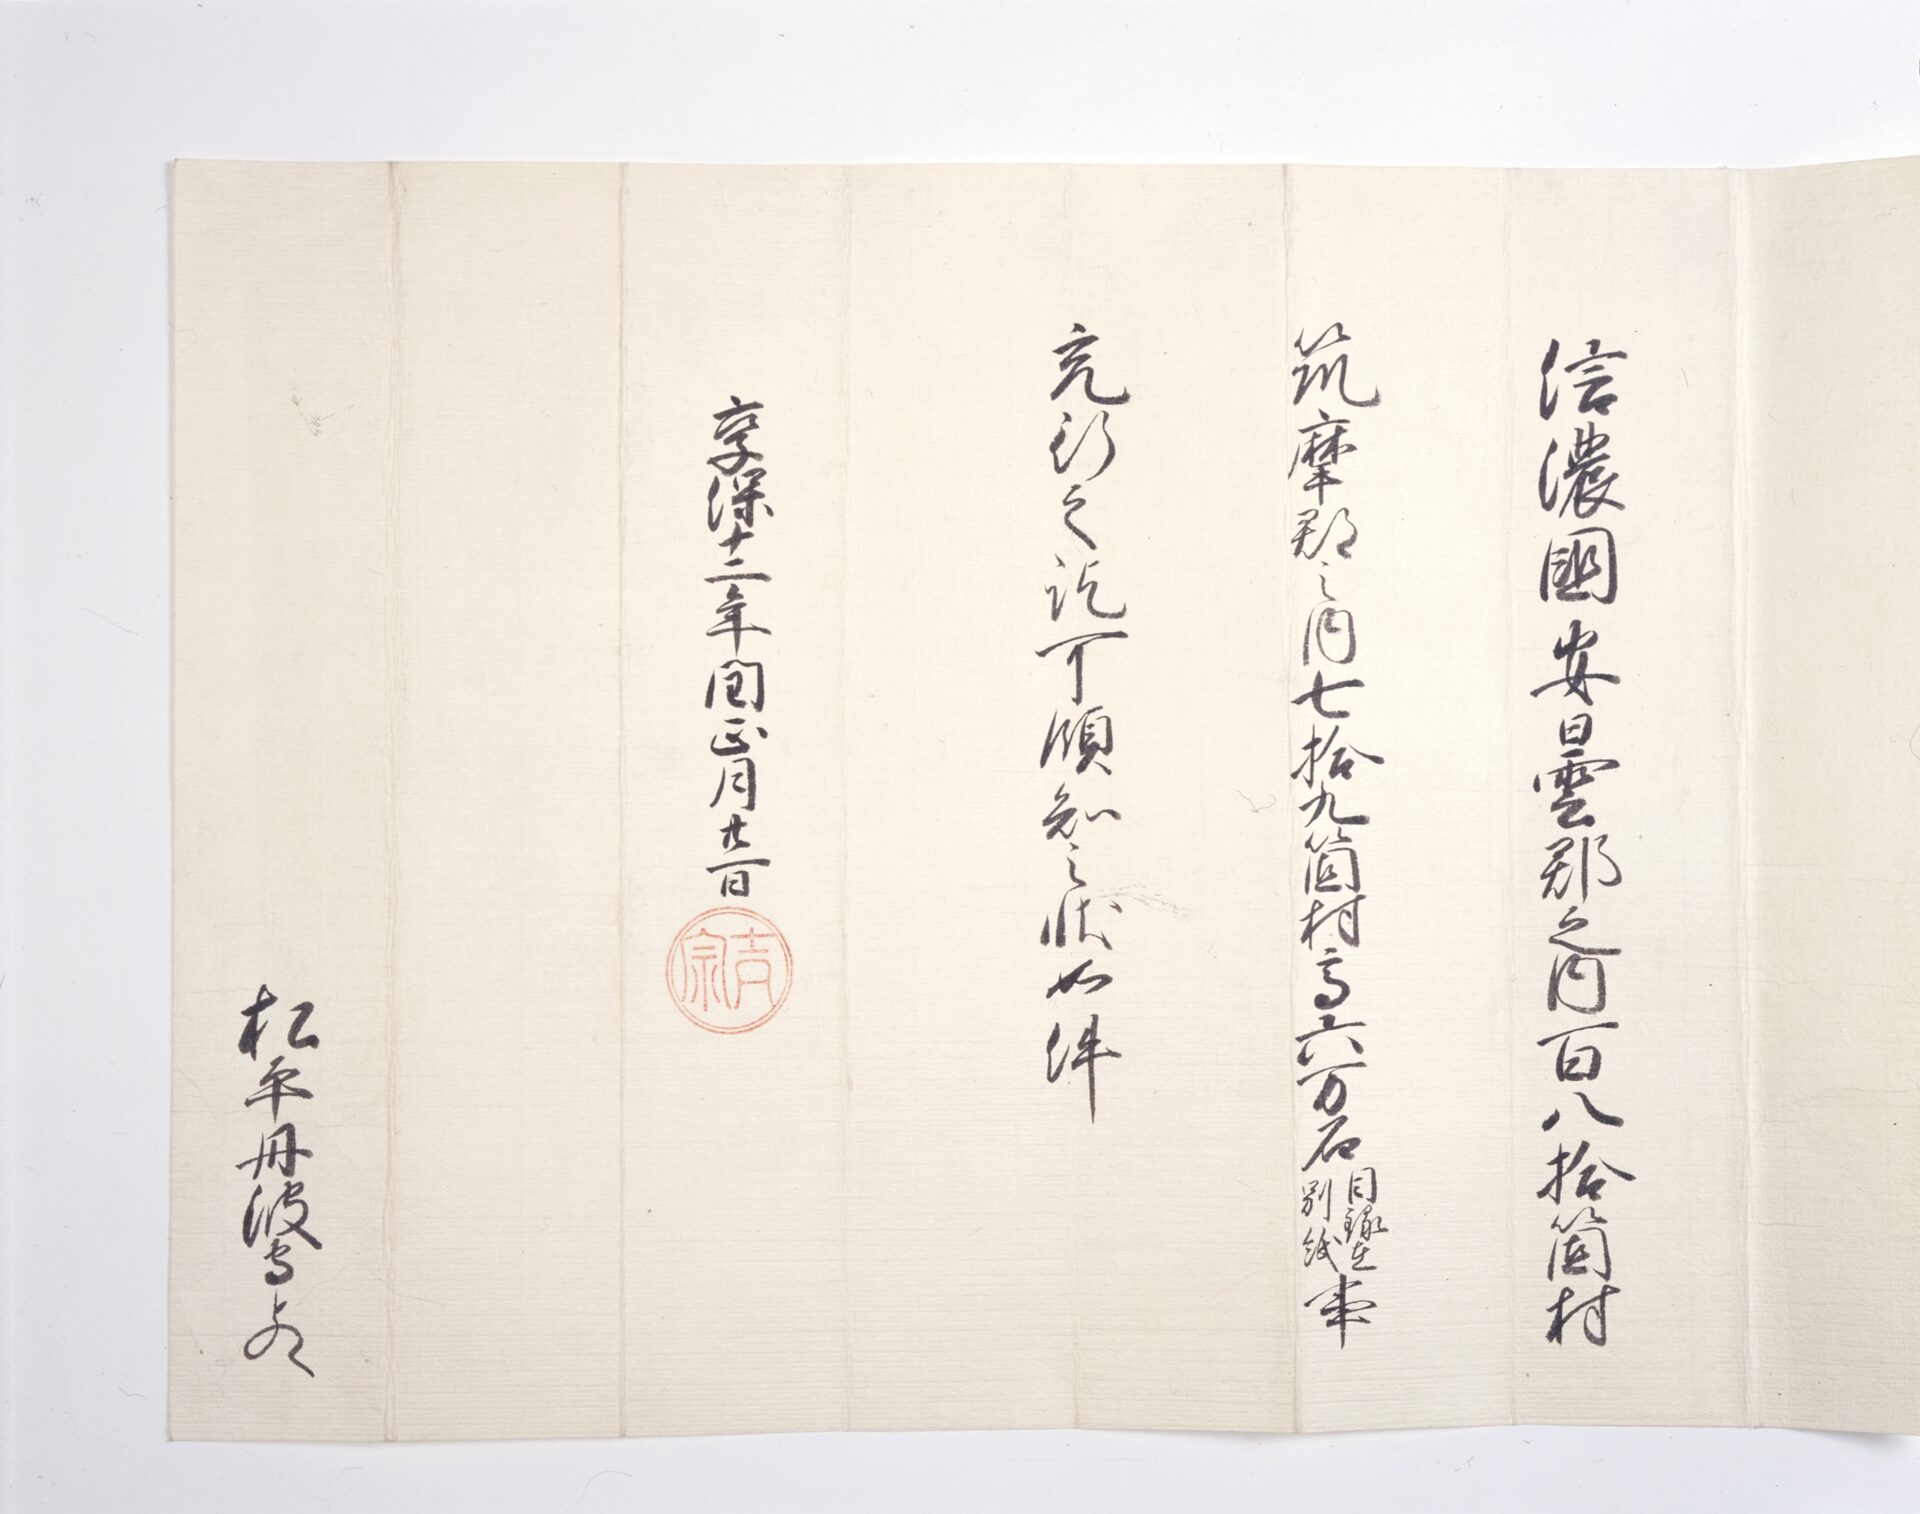 信濃國安曇郡之内百八拾箇村
筑摩郡之内七拾九箇村高六万石目録在別紙事
充行之訖可領知之状如件
享保十二年閏正月廿一日
吉宗
松平丹波守とのへ